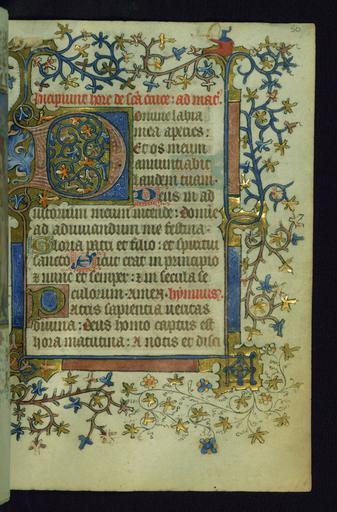 50
Incipiunt hore de sca cruce: ad mat.
Domine labia
mea aperies:
Et os meum
annuntiabit
laudem tuam.
Deus in ad
iutorium meum intende: Domi
ad adiuuandum me festina.
Gloria patri et filio: et spiritui
sancto. Sicut erat in principio
et nunc et semper: et in secula se
culorum. Amen. hymnus.
Patris sapientia ueritas
diuina: Deus homo captus est
hora matutina: A notis et disci